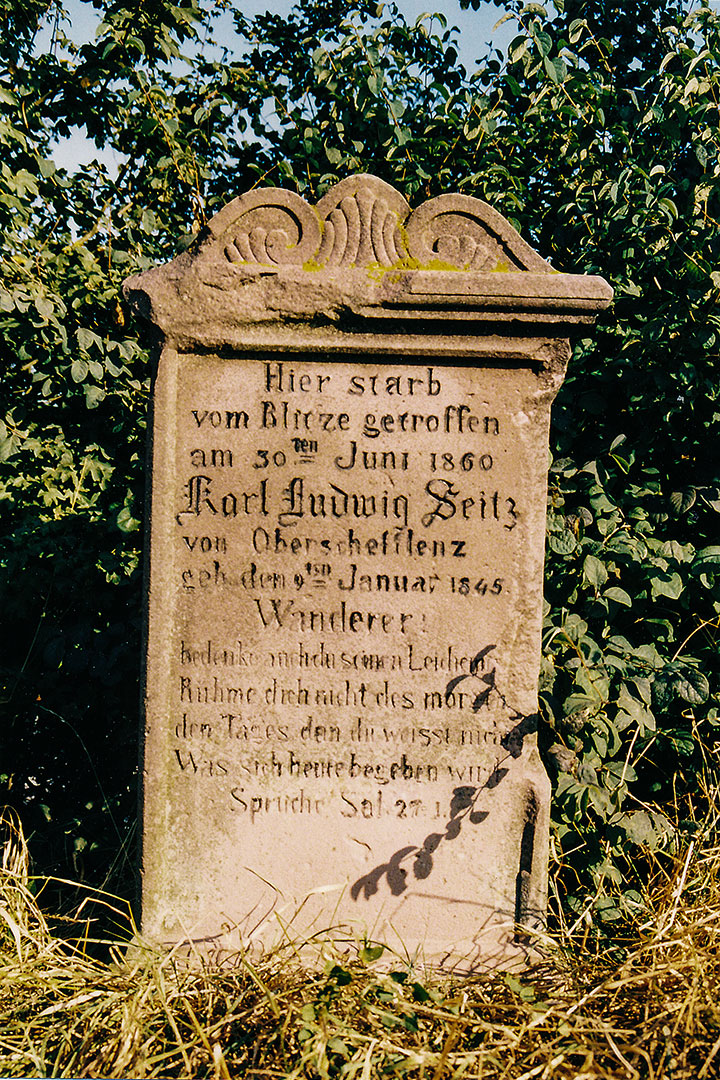 Hier starb
vom Blitze getroffen
am 30ten Juni 1860
Karl Ludwig Seitz
von Oberschefflenz
geb. den 9ten Januar 1845.
Wanderer!
bedenke auch du seinen
Rühme dich nicht des
den Tages, den du weisst nicht
Was sich heute begeben wird
Sprüche Sal. 27.1.